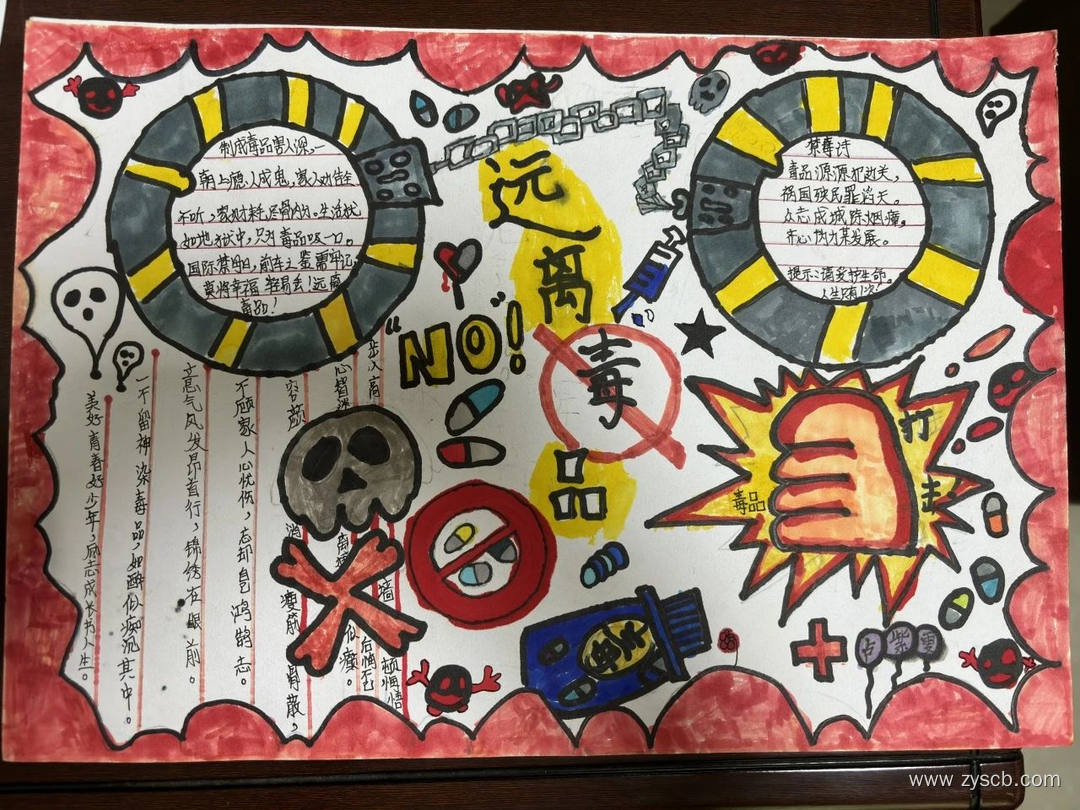 远离毒品
"NO"!
制成毒品害人深,
朝上瘾人成鬼,家人劝告全
不听,家财耗尽骨肉。生活犹
如地狱中,只为毒品吸一口。
国际禁毒日,前车之鉴需牢记。
莫将幸福轻易去!远离
毒品!
禁毒诗
毒品源源犯边关,
祸国殃民罪滔天。
众志成城除烟瘴,
齐心协力某发展。
提示:请爱护生命。
人生只有1次
美好青春好少年,励志成长书人生。
一不留神染毒品,如醉似痴沉其中。
意气风发昂首行,锦绣在眼前。
不顾家人心忧伤,忘却自己鸿鹄志。
容颜消瘦筋骨散,
似癫。
后悔不已
顿悔悟
打击
毒品
www.zyscb.com